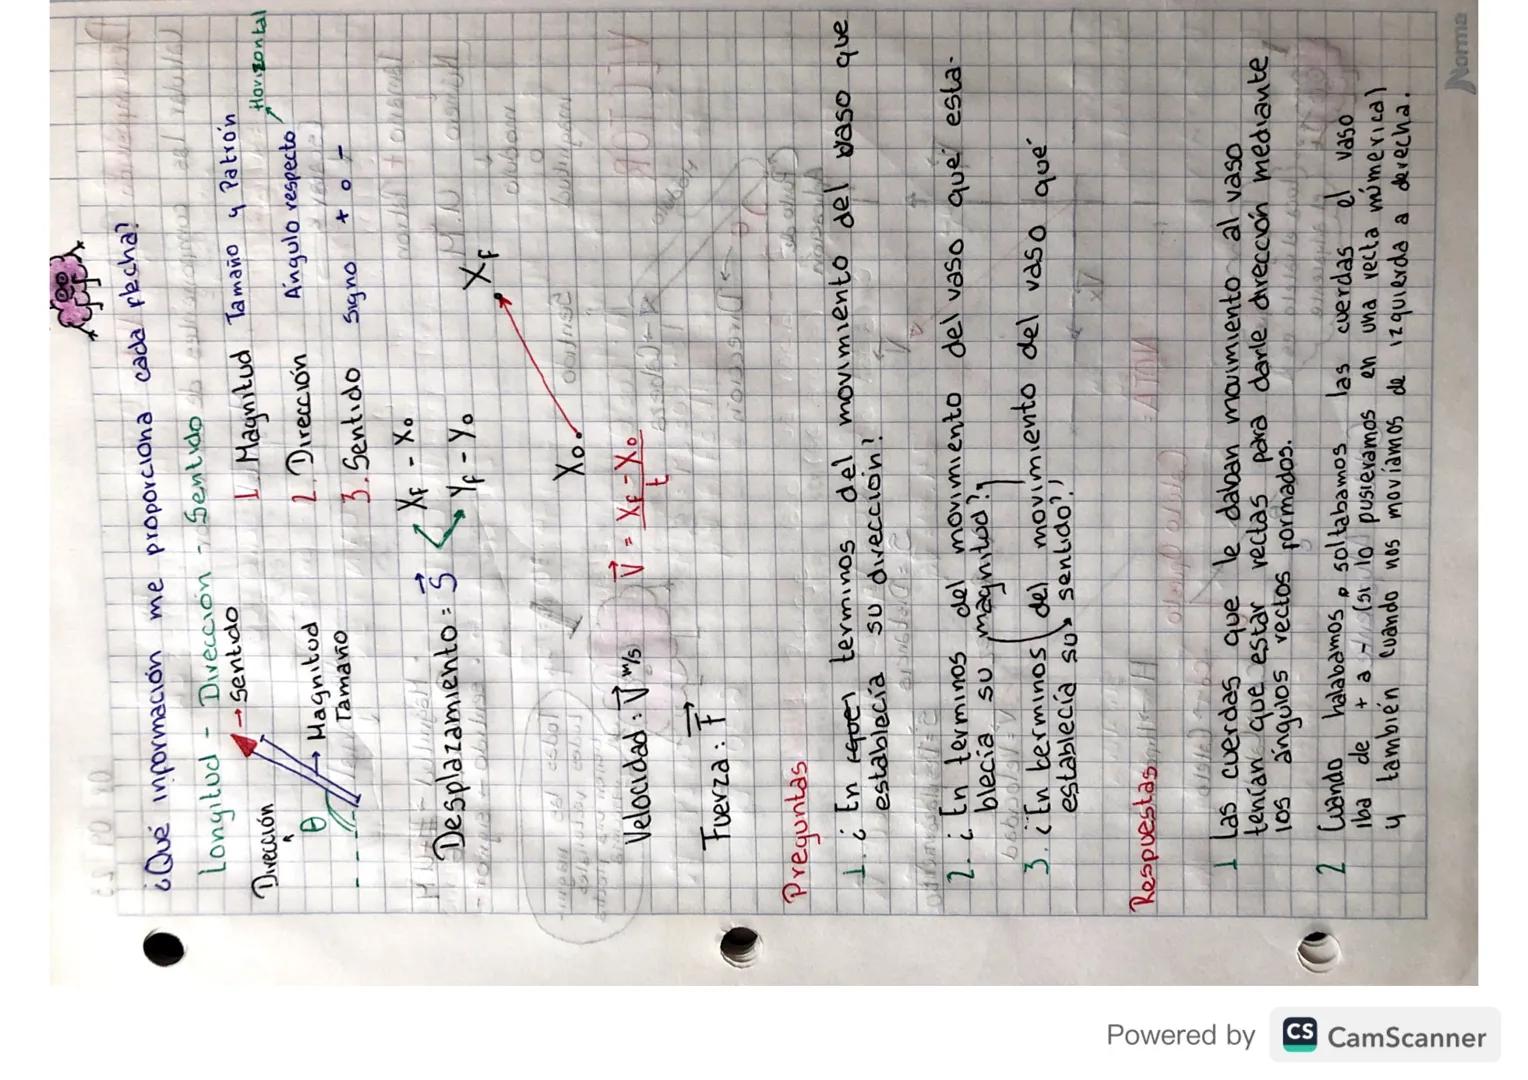 ¿Qué información me proporciona cada flecha?
Longitud - Dirección - Sentido
Dirección
→ Sentido
θ
→ Magnitud
Tamaño
1. Magnitud Tamaño y Patrón
2. Dirección Ángulo respecto Horizontal
3. Sentido signo + o -
Desplazamiento = S
XF - Xo
YF - Yo
Xo
XF
Velocidad: V m/s
V = XF - Xo
t
Fuerza: F
Preguntas
1. ¿En que terminos del movimiento del vaso que
establecía su dirección?
2. ¿En terminos del movimiento del vaso qué esta-
blecía su magnitud?
3. ¿En terminos del movimiento del vaso qué
establecía su sentido?
Respuestas
1 Las cuerdas que le daban movimiento al vaso
tenían que estar rectas para darle dirección mediante
los ángulos rectos formados.
2 Cuando halabamos o soltabamos las cuerdas el vaso
iba de + a - (si lo pusieramos en una recta númerica)
y también cuando nos movíamos de izquierda a derecha.
Norma
Powered by CS CamScanner